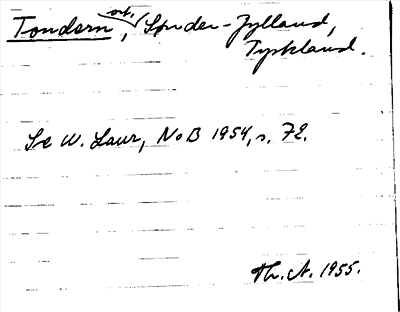 Tondern, ort, Sønder-Jylland,
Tyskland.
Se W. Laur, NoB 1954, s. 72.
Th. A. 1955.